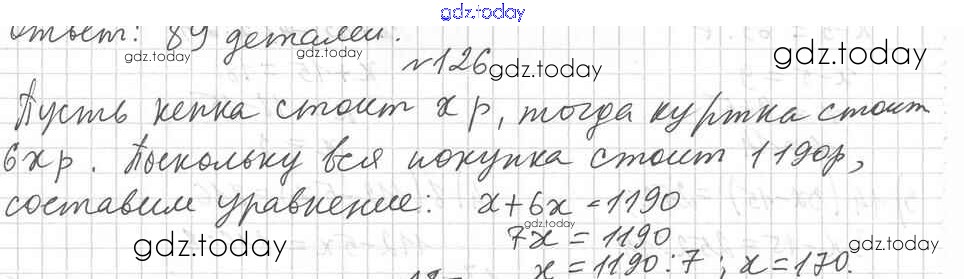 gdz.today
Ответ: 89 деталей.
gdz.today
gdz.today
№126
gdz.today
Пусть кепка стоит x р, тогда куртка стоит
6x р. Поскольку вся покупка стоит 1190р,
составим уравнение: x+6x=1190
gdz.today
7x=1190
gdz.today
gdz.today
x=1190:7; x=170.